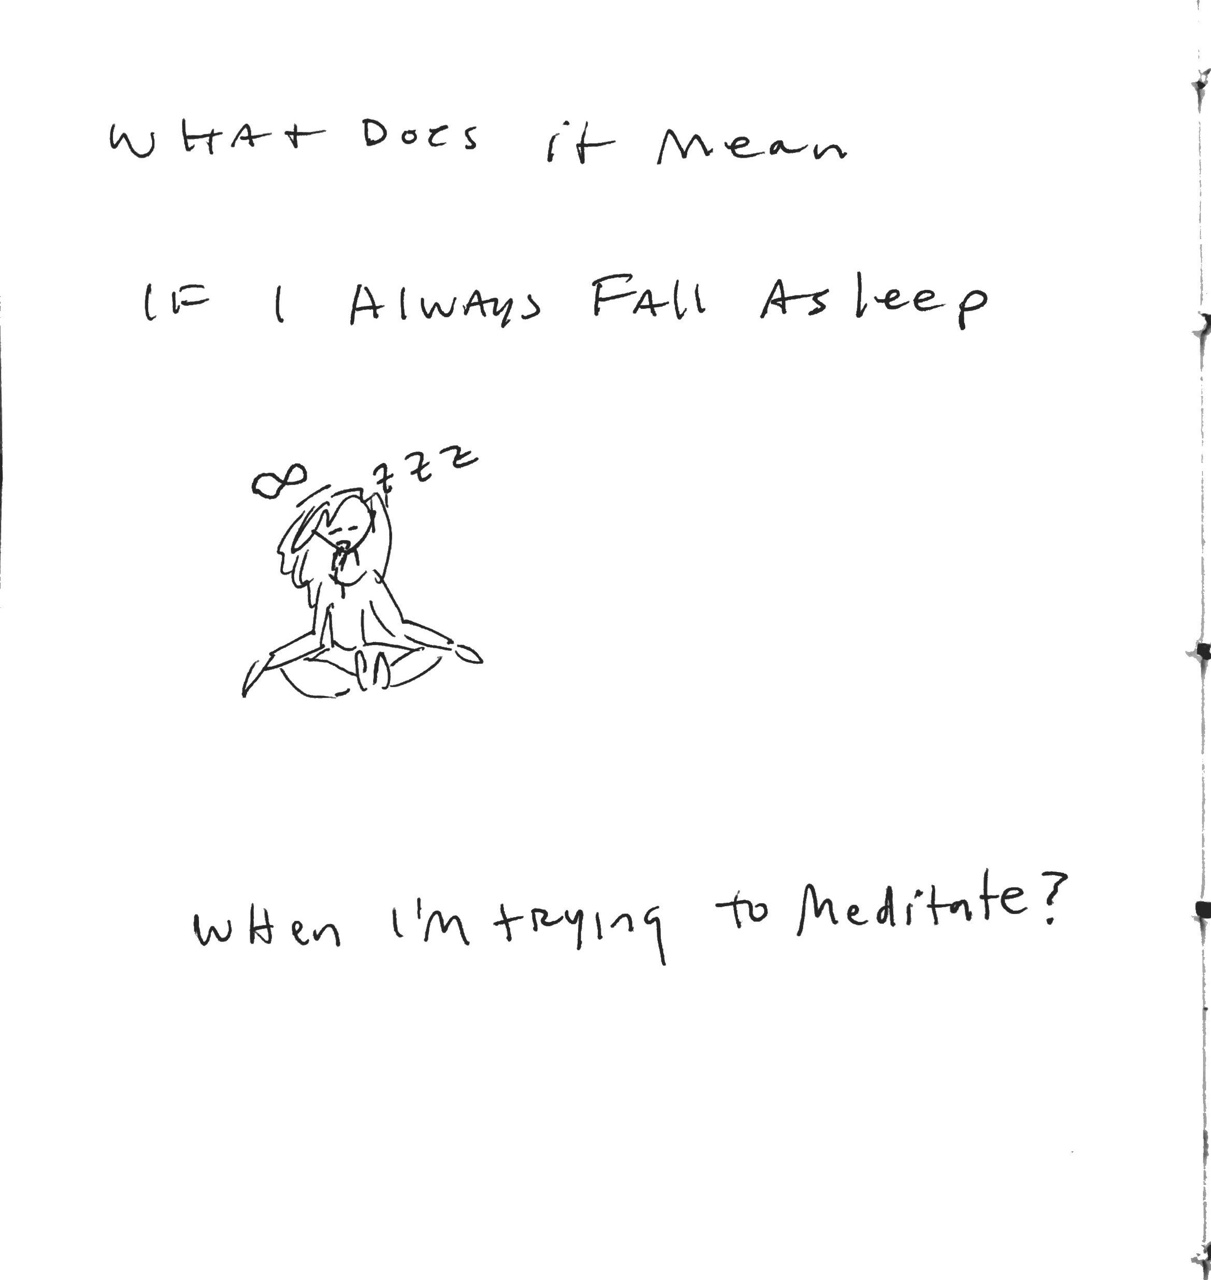 WHAt DoEs it Mean
IF I AlwAys FAll Asleep
∞ z z z
wHen I'm tRying to Meditate?